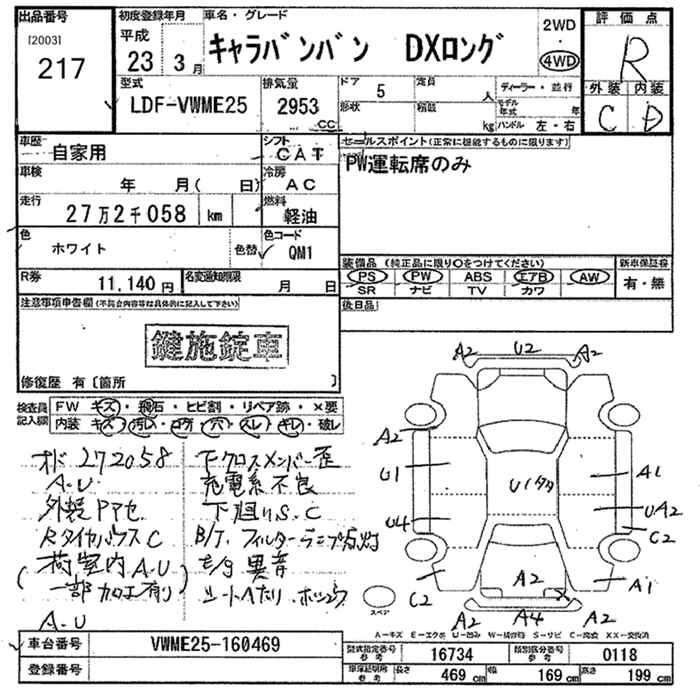 出品番号
[2003]
217
初度登録年月
平成
23 3月
車名・グレード
キャラバンバン DXロング
2WD
・
4WD
評価点
R
外装 内装
C D
型式
LDF-VWME25
排気量
2953
cc
ドア 5
形状
定員 人
積載 kg
ディーラー・並行
モデル年式 年
ハンドル 左・右
車歴 自家用
シフト CAT
車検 年 月( 日)
冷房 AC
走行 27万2千058 km
燃料 軽油
色 ホワイト
色替
色コード QM1
R券 11,140円
名変通知期限 月 日
セールスポイント(正常に機能するものに限ります)
PW運転席のみ
装備品 (純正品に限り○をつけてください)
PS PW ABS エアB AW
SR ナビ TV カワ
新車保証書
有・無
後日品
注意事項申告欄(不具合内容等は具体的に記入して下さい)
鍵施錠車
修復歴 有〔箇所 〕
検査員記入欄
FW キズ・飛石・ヒビ割・リペア跡・×要
内装 キズ・汚レ・コゲ・穴・スレ・キレ・破レ
オド 272058
A.U
外装PPセ
RタイヤハウスC
(荷室内A.U
一部加工有り)
A.U
下クロスメンバー歪
充電系不良
下廻りS.C
B/T. フィルターランプ点灯
E/g 異音
シートヘたり.
A2 U2 A2
A2
U1
U4
C2
U1タタ
A1
UA2
C2
A1
A2
X
A2 A4 A2
スペア
A-キズ E-エクボ U-凹み W-補修跡 S-サビ C-腐食 XX-交換済
車台番号 VWME25-160469
登録番号
型式指定番号 参考 16734
類別区分番号 参考 0118
車庫証明用 参考
長さ 469 cm
幅 169 cm
高さ 199 cm